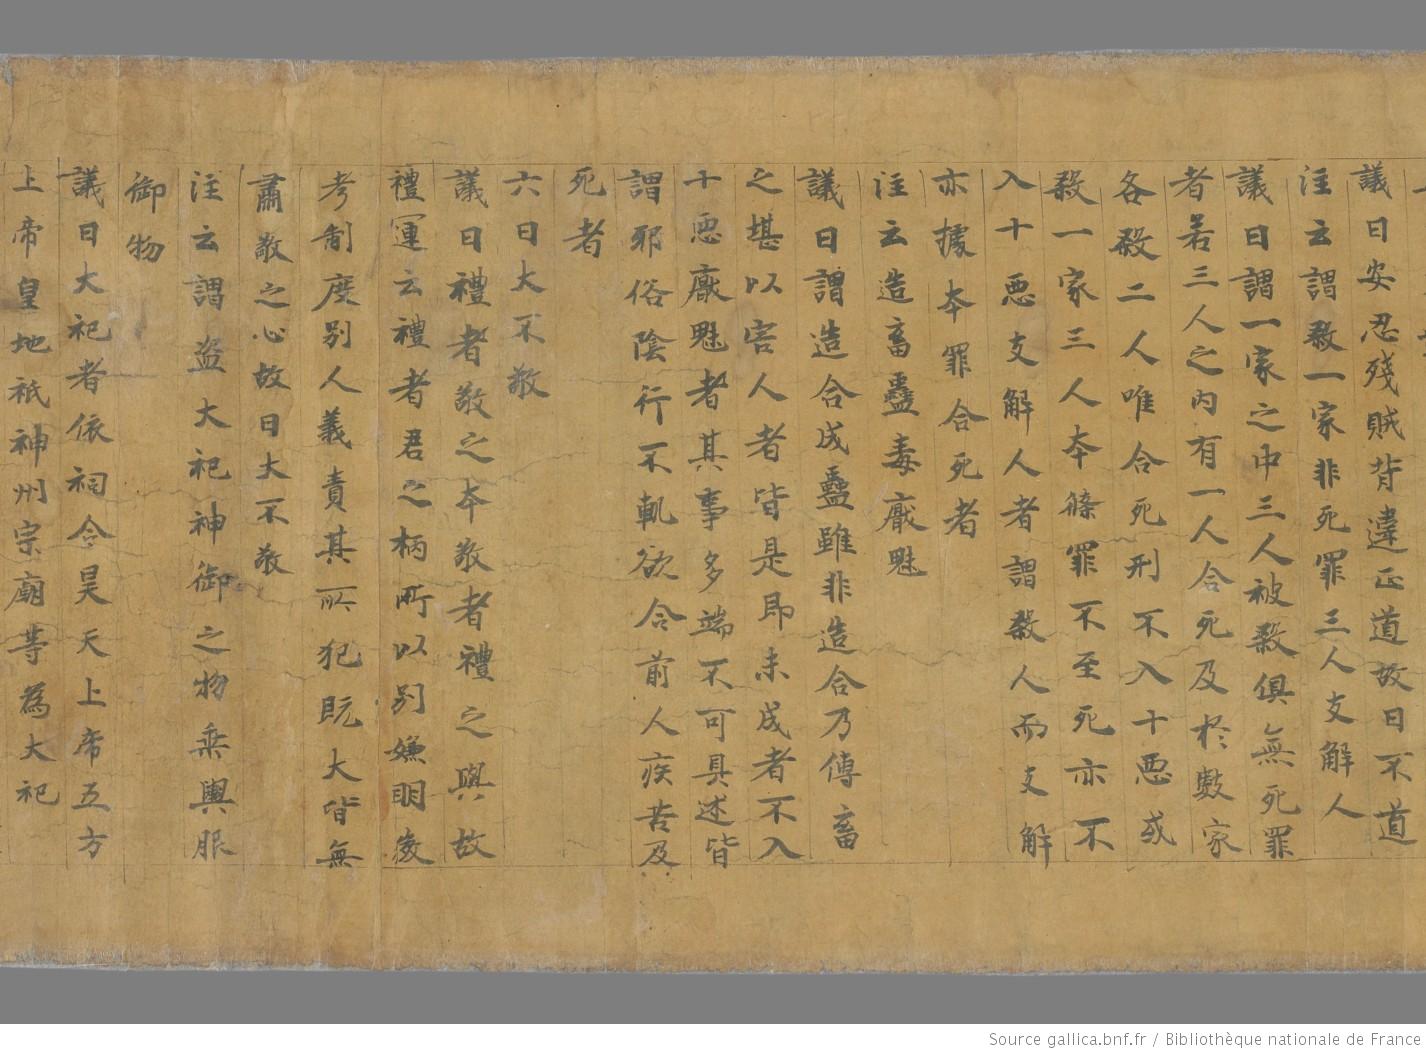 議曰安忍殘賊背違正道故曰不道
注云謂煞一家非死罪三人支解人
議曰謂一家之中三人被煞俱無死罪
者若三人之內有一人合死及於數家
各煞二人唯合死刑不入十惡或
煞一家三人本條罪不至死亦不
入十惡支解人者謂煞人而支解
亦據本罪合死者
注云造畜蠱毒厭魅
議曰謂造合成蠱雖非造合乃傳畜
之堪以害人者皆是即未成者不入
十惡厭魅者其事多端不可具述皆
謂邪俗陰行不軌欲令前人疾苦及
死者
六曰大不敬
議曰禮者敬之本敬者禮之輿故
禮運云禮者君之柄所以別嫌明微
考制度別人義責其所犯既大皆無
肅敬之心故曰大不敬
注云謂盜大祀神御之物乘輿服
御物
議曰大祀者依祠令昊天上帝五方
上帝皇地祇神州宗廟等為大祀
Source gallica.bnf.fr / Bibliothèque nationale de France